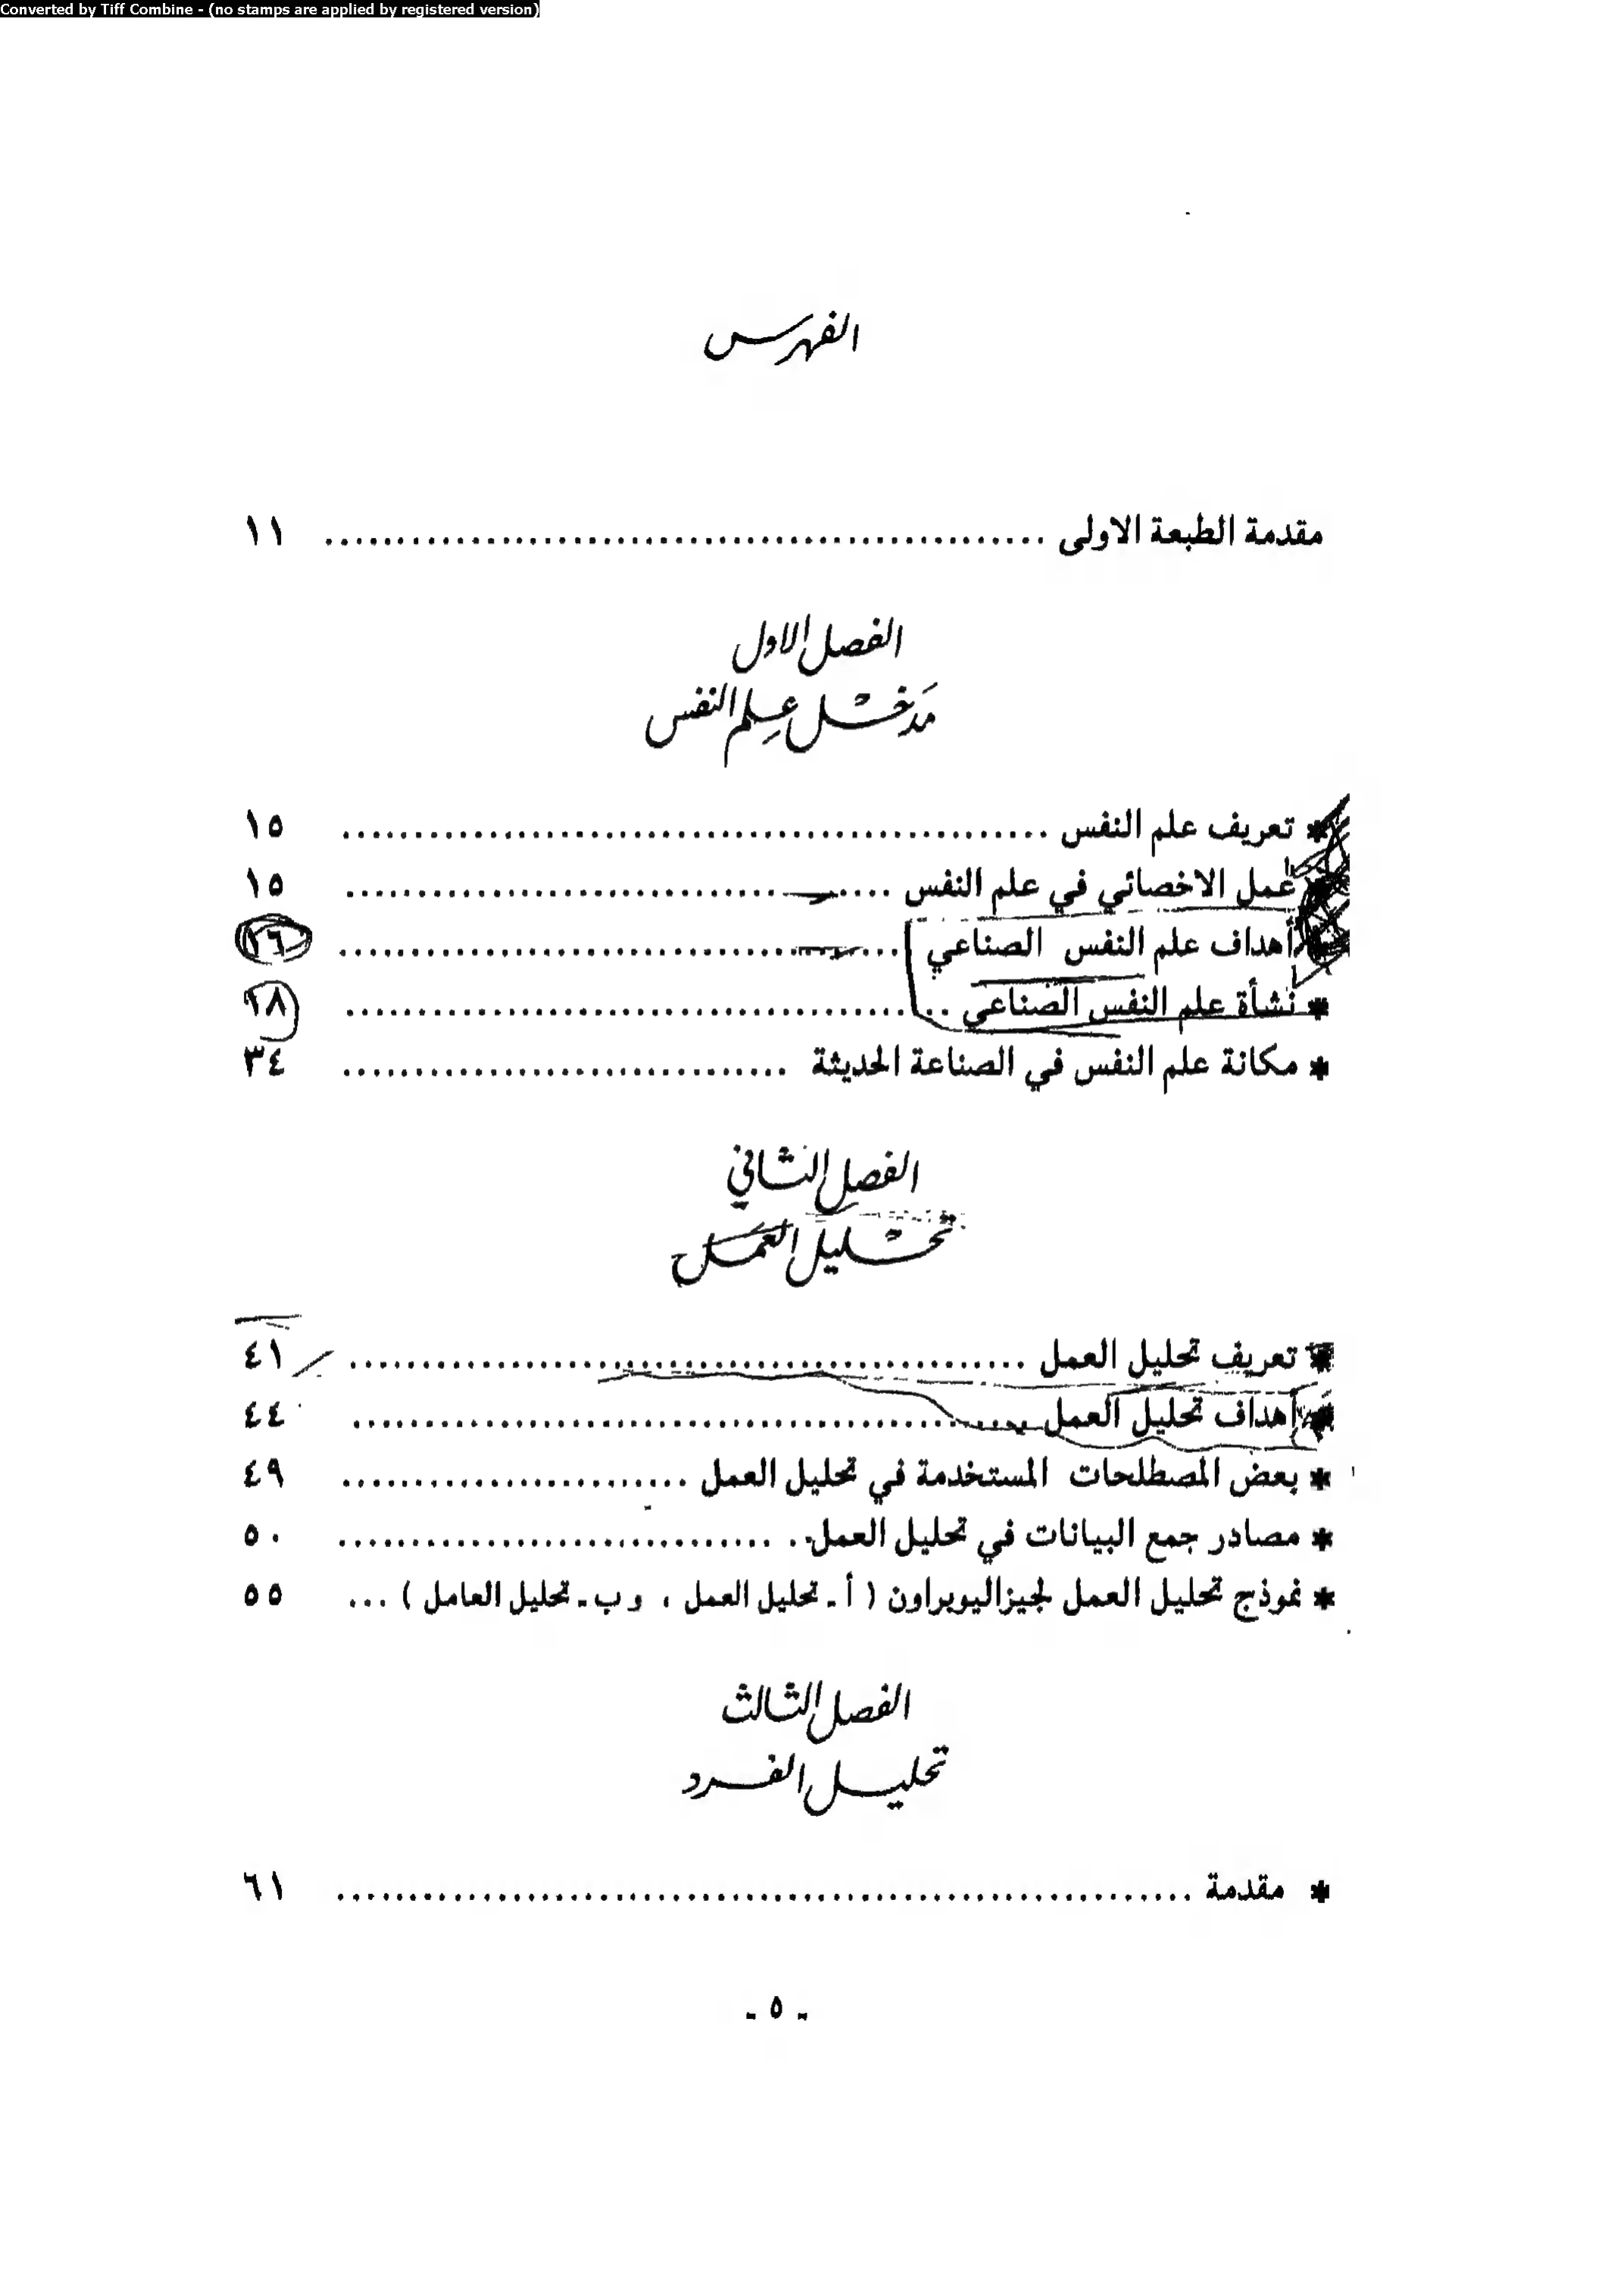 Converted by Tiff Combine - (no stamps are applied by registered version)
الفهرس
مقدمة الطبعة الاولى ................................................ ١١
الفصل الاول
مدخل علم النفس
* تعريف علم النفس ................................................ ١٥
* عمل الاخصائي في علم النفس ...................................... ١٥
* أهداف علم النفس الصناعي ...................................... ٢٦
* نشأة علم النفس الصناعي ......................................... ٢٨
* مكانة علم النفس في الصناعة الحديثة ............................... ٣٤
الفصل الثاني
تحليل العمل
* تعريف تحليل العمل .............................................. ٤١
* أهداف تحليل العمل .............................................. ٤٤
* بعض المصطلحات المستخدمة في تحليل العمل ........................ ٤٩
* مصادر جمع البيانات في تحليل العمل ............................... ٥٠
* نموذج تحليل العمل لجيزاليوبراون ( أ ـ تحليل العمل ، و ب ـ تحليل العامل ) ... ٥٥
الفصل الثالث
تحليل الفرد
* مقدمة ........................................................... ٦١
- ٥ -